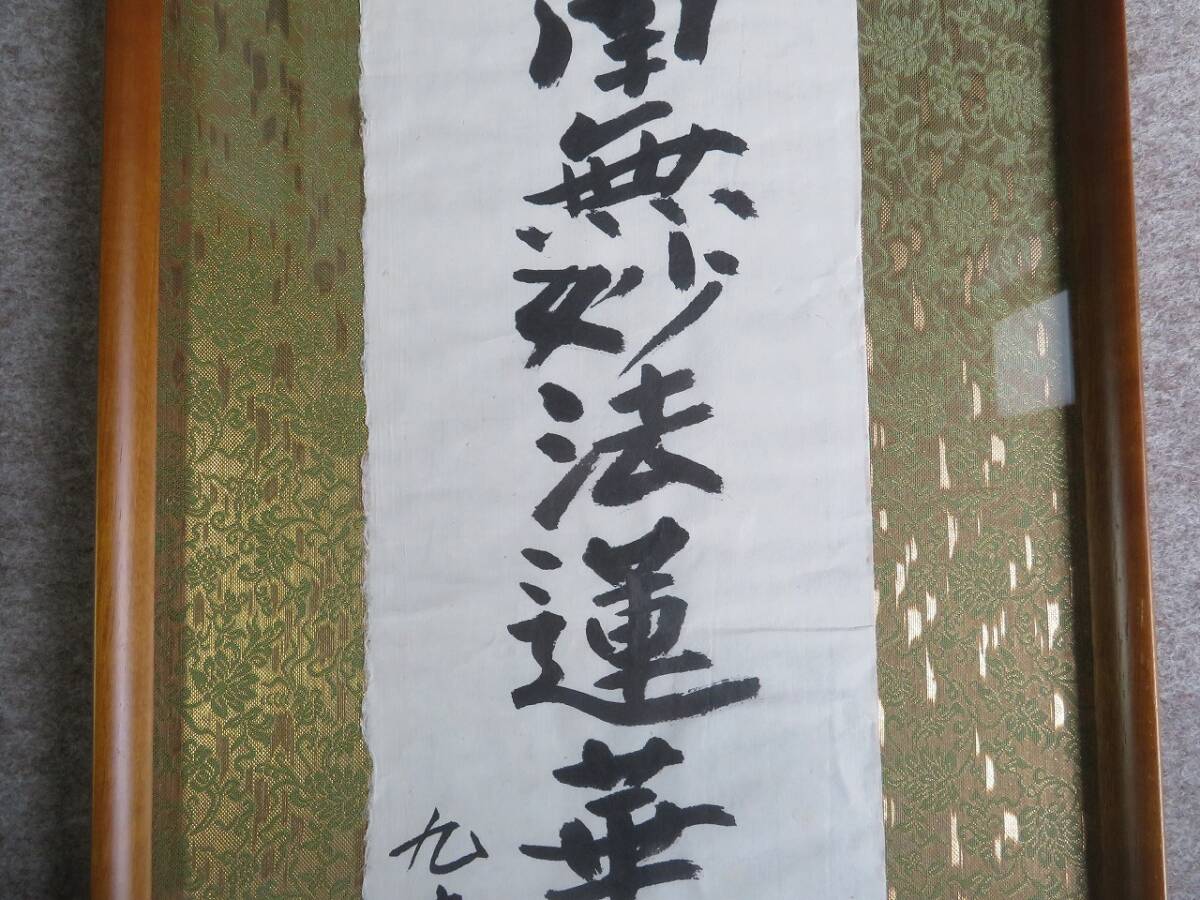 南無妙法蓮華
九